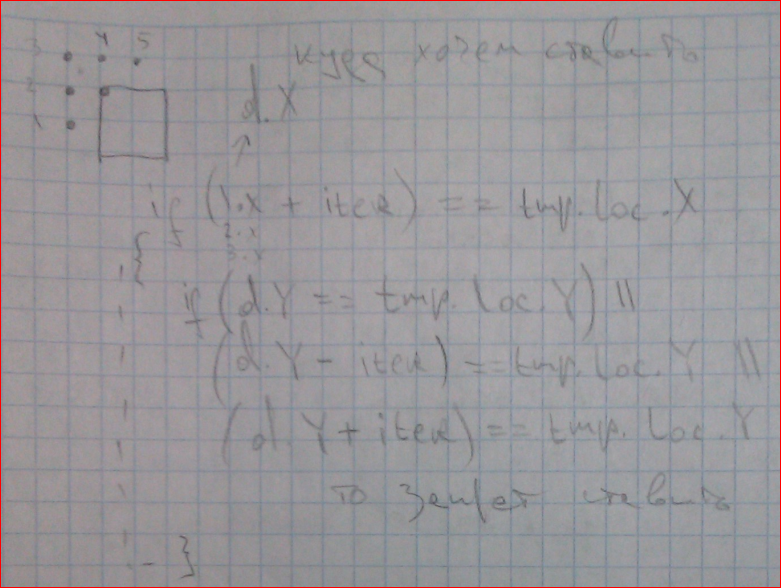 3 4 5
куда хотем ставить
2
1
d.X
↑
if (1.x + iter) == tmp.loc.X
2.x
{
3.x
if (d.Y == tmp.loc.Y) ||
(d.Y - iter) == tmp.loc.Y ||
(d.Y + iter) == tmp.loc.Y
то запрет ставить
}